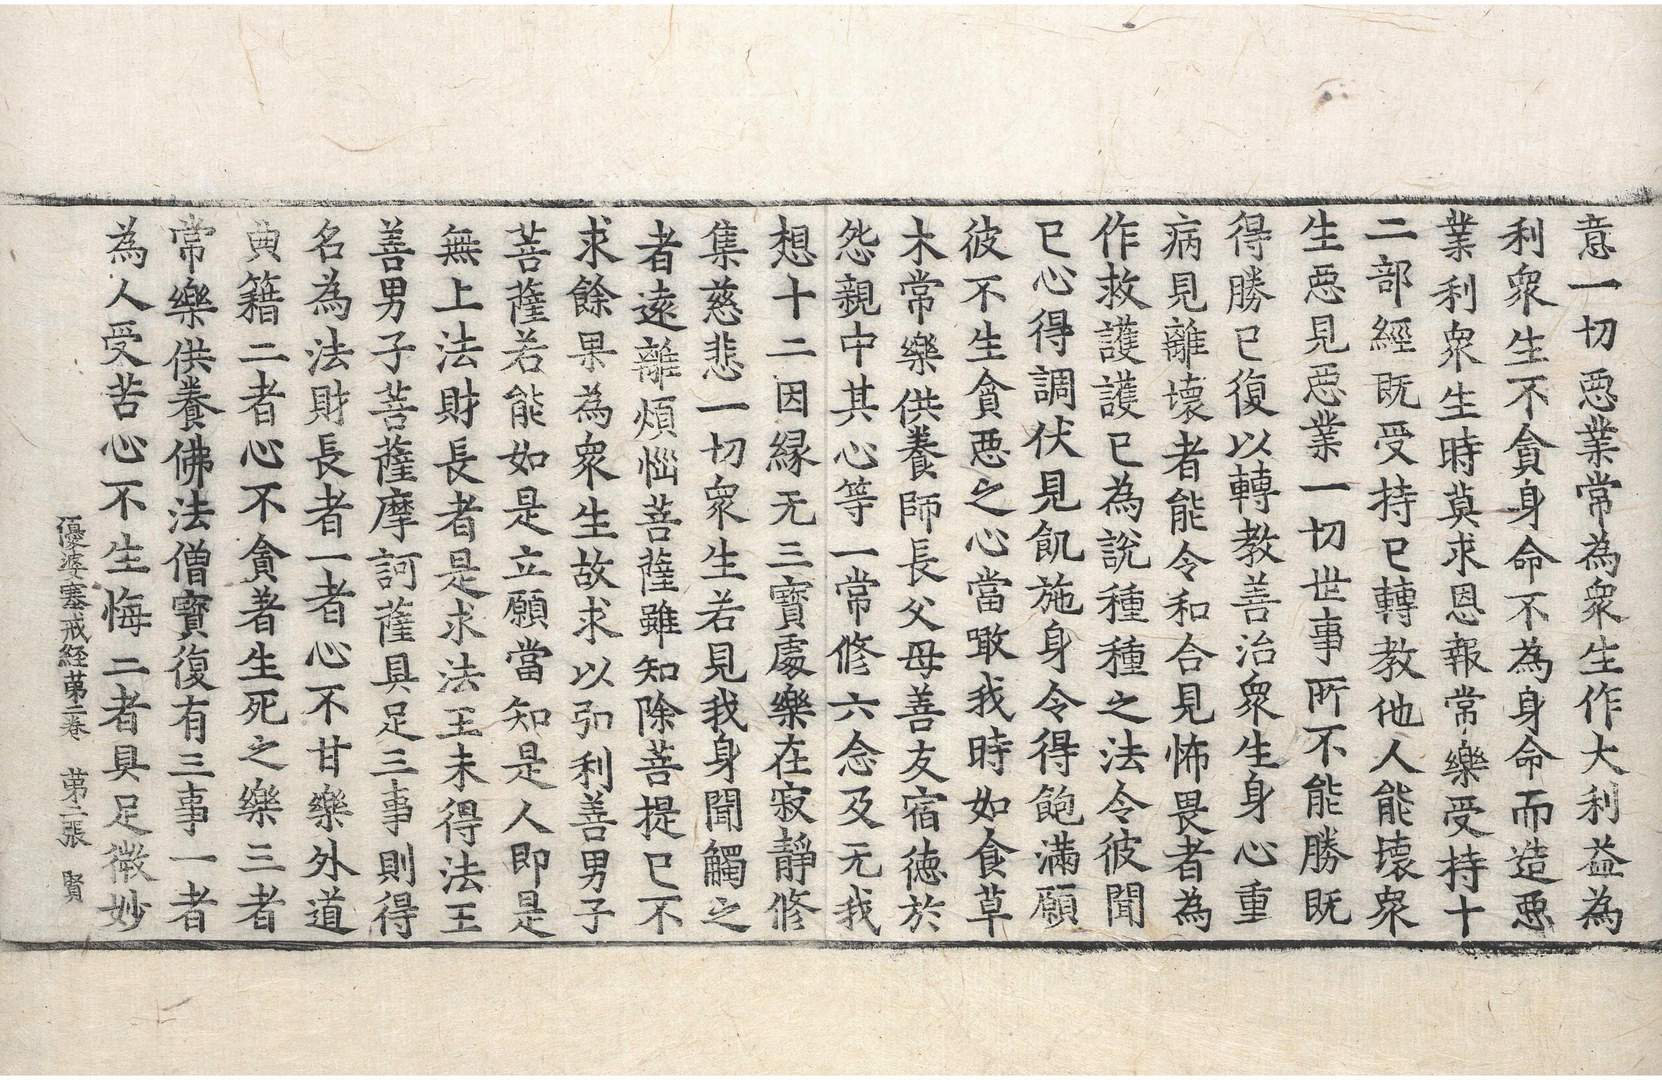 意一切惡業常為衆生作大利益為
利衆生不貪身命不為身命而造惡
業利衆生時莫求恩報常樂受持十
二部經既受持已轉教他人能壞衆
生惡見惡業一切世事所不能勝既
得勝已復以轉教善治衆生身心重
病見離壞者能令和合見怖畏者為
作救護護已為說種種之法令彼聞
已心得調伏見飢施身令得飽滿願
彼不生貪惡之心當噉我時如食草
木常樂供養師長父母善友宿德於
怨親中其心等一常修六念及无我
想十二因緣无三寶處樂在寂靜修
集慈悲一切衆生若見我身聞觸之
者遠離煩惱菩薩雖知除菩提已不
求餘果為衆生故求以弘利善男子
菩薩若能如是立願當知是人即是
無上法財長者是求法王未得法王
善男子菩薩摩訶薩具足三事則得
名為法財長者一者心不甘樂外道
典籍二者心不貪著生死之樂三者
常樂供養佛法僧寶復有三事一者
為人受苦心不生悔二者具足微妙
優婆塞戒経苐二卷 苐二張 賢